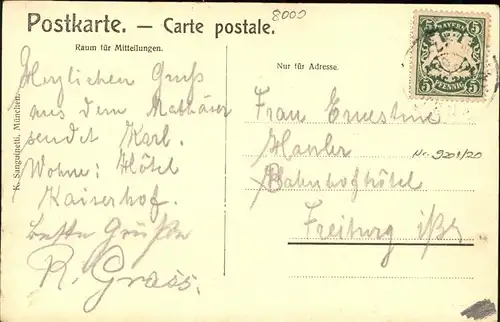 Postkarte. — Carte postale.
8000
Raum für Mitteilungen.
Nur für Adresse.
BAYERN
5 5
5 PFENNIG 5
Herzlichen Gruß
aus dem Mathäser
sendet Karl.
Wohne: Hôtel
Kaiserhof.
beste Grüße
R. Grass.
K. Sanguinetti, München.
Frau Ernestine
Hanler
Bahnhofhôtel
Freiburg i/Br.
Nr. 9201/20